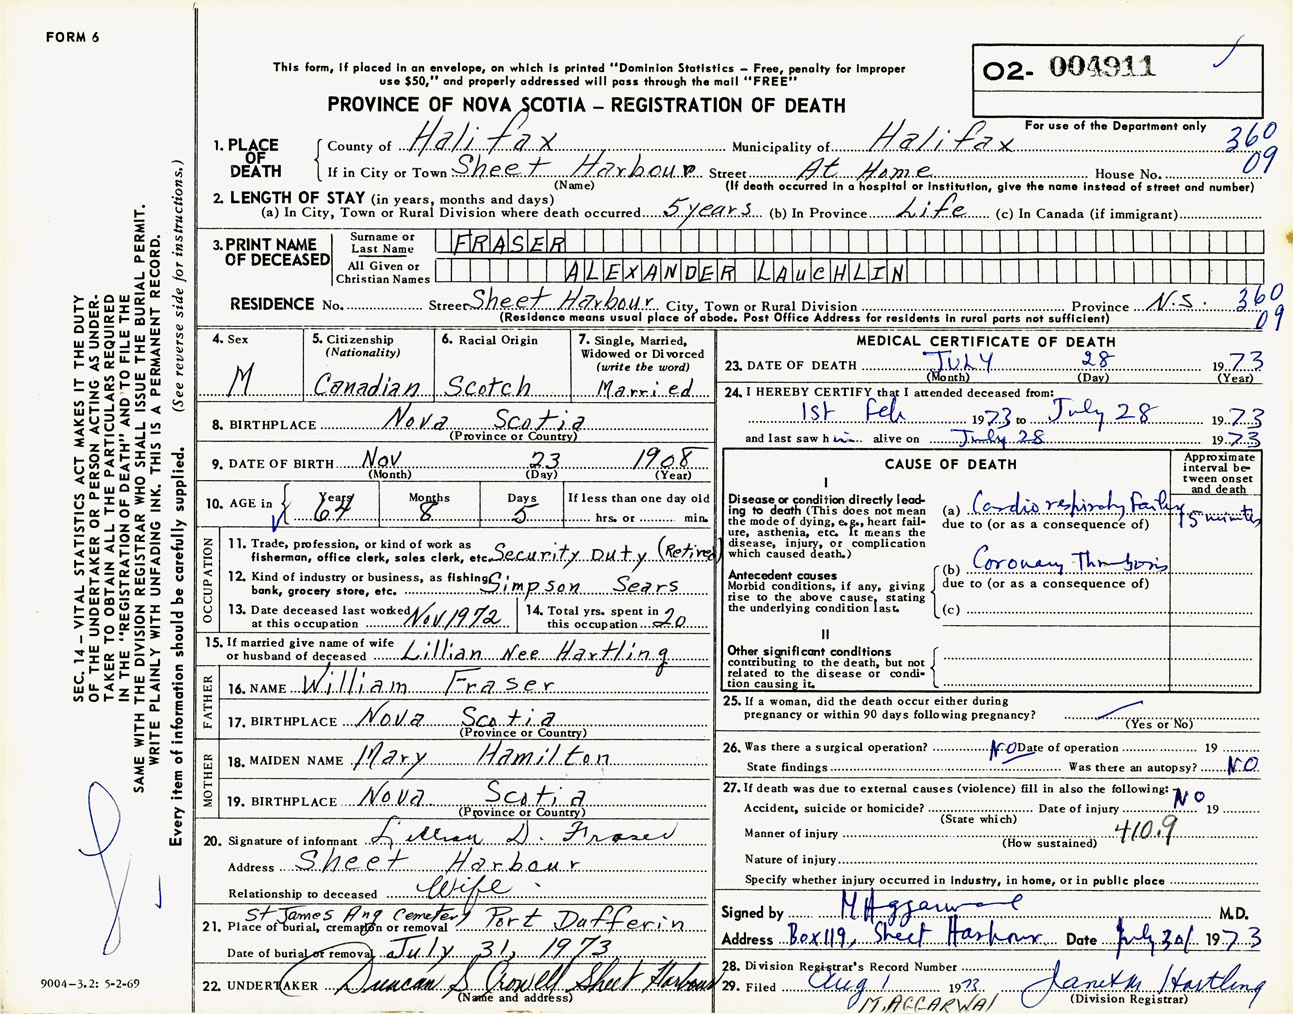 FORM 6
This form, if placed in an envelope, on which is printed "Dominion Statistics – Free, penalty for improper
use $50," and properly addressed will pass through the mail "FREE"
02- 004911
For use of the Department only
PROVINCE OF NOVA SCOTIA – REGISTRATION OF DEATH
360
09
1. PLACE OF DEATH County of Halifax Municipality of Halifax
If in City or Town Sheet Harbour Street At Home House No.
(Name) (If death occurred in a hospital or institution, give the name instead of street and number)
2. LENGTH OF STAY (in years, months and days)
(a) In City, Town or Rural Division where death occurred 5 years (b) In Province Life (c) In Canada (if immigrant)
3. PRINT NAME OF DECEASED
Surname or Last Name FRASER
All Given or Christian Names ALEXANDER LAUCHLIN
RESIDENCE No. Street Sheet Harbour City, Town or Rural Division Province N.S. 360
09
(Residence means usual place of abode. Post Office Address for residents in rural parts not sufficient)
4. Sex M
5. Citizenship (Nationality) Canadian
6. Racial Origin Scotch
7. Single, Married, Widowed or Divorced (write the word) Married
8. BIRTHPLACE Nova Scotia
(Province or Country)
9. DATE OF BIRTH Nov 23 1908
(Month) (Day) (Year)
10. AGE in Years 64 Months 8 Days 5 If less than one day old
hrs. or min.
OCCUPATION
11. Trade, profession, or kind of work as
fisherman, office clerk, sales clerk, etc. Security Duty (Retired)
12. Kind of industry or business, as fishing,
bank, grocery store, etc. Simpson Sears
13. Date deceased last worked
at this occupation Nov 1972
14. Total yrs. spent in
this occupation 20
15. If married give name of wife
or husband of deceased Lillian Nee Hartling
FATHER
16. NAME William Fraser
17. BIRTHPLACE Nova Scotia
(Province or Country)
MOTHER
18. MAIDEN NAME Mary Hamilton
19. BIRTHPLACE Nova Scotia
(Province or Country)
20. Signature of informant Lillian D. Fraser
Address Sheet Harbour
Relationship to deceased Wife
21. Place of burial, cremation or removal St James Ang Cemetery Port Dufferin
Date of burial or removal July 31, 1973
22. UNDERTAKER Duncan S Crowell Sheet Harbour
(Name and address)
MEDICAL CERTIFICATE OF DEATH
23. DATE OF DEATH JULY 28 1973
(Month) (Day) (Year)
24. I HEREBY CERTIFY that I attended deceased from:
1st Feb 1973 to July 28 1973
and last saw him alive on July 28 1973
CAUSE OF DEATH
Approximate interval between onset and death
I
Disease or condition directly lead-
ing to death (This does not mean
the mode of dying, e.g., heart fail-
ure, asthenia, etc. It means the
disease, injury, or complication
which caused death.)
(a) Cardio respiratory Failure 15 minutes
due to (or as a consequence of)
Antecedent causes
Morbid conditions, if any, giving
rise to the above cause, stating
the underlying condition last.
(b) Coronary Thrombosis
due to (or as a consequence of)
(c)
II
Other significant conditions
contributing to the death, but not
related to the disease or condi-
tion causing it.
25. If a woman, did the death occur either during
pregnancy or within 90 days following pregnancy?
(Yes or No)
26. Was there a surgical operation? NO Date of operation 19
State findings Was there an autopsy? NO
27. If death was due to external causes (violence) fill in also the following: NO
Accident, suicide or homicide? Date of injury 19
(State which)
Manner of injury 410.9
(How sustained)
Nature of injury
Specify whether injury occurred in industry, in home, or in public place
Signed by M Aggarwal M.D.
Address Box 119, Sheet Harbour Date July 30/ 1973
28. Division Registrar's Record Number
29. Filed Aug 1 1973 Janet M Hartling
(Division Registrar)
M. AGGARWAL
SEC. 14 – VITAL STATISTICS ACT MAKES IT THE DUTY
OF THE UNDERTAKER OR PERSON ACTING AS UNDER-
TAKER TO OBTAIN ALL THE PARTICULARS REQUIRED
IN THE "REGISTRATION OF DEATH" AND TO FILE THE
SAME WITH THE DIVISION REGISTRAR WHO SHALL ISSUE THE BURIAL PERMIT.
WRITE PLAINLY WITH UNFADING INK. THIS IS A PERMANENT RECORD.
Every item of information should be carefully supplied. (See reverse side for instructions.)
9004-3.2: 5-2-69